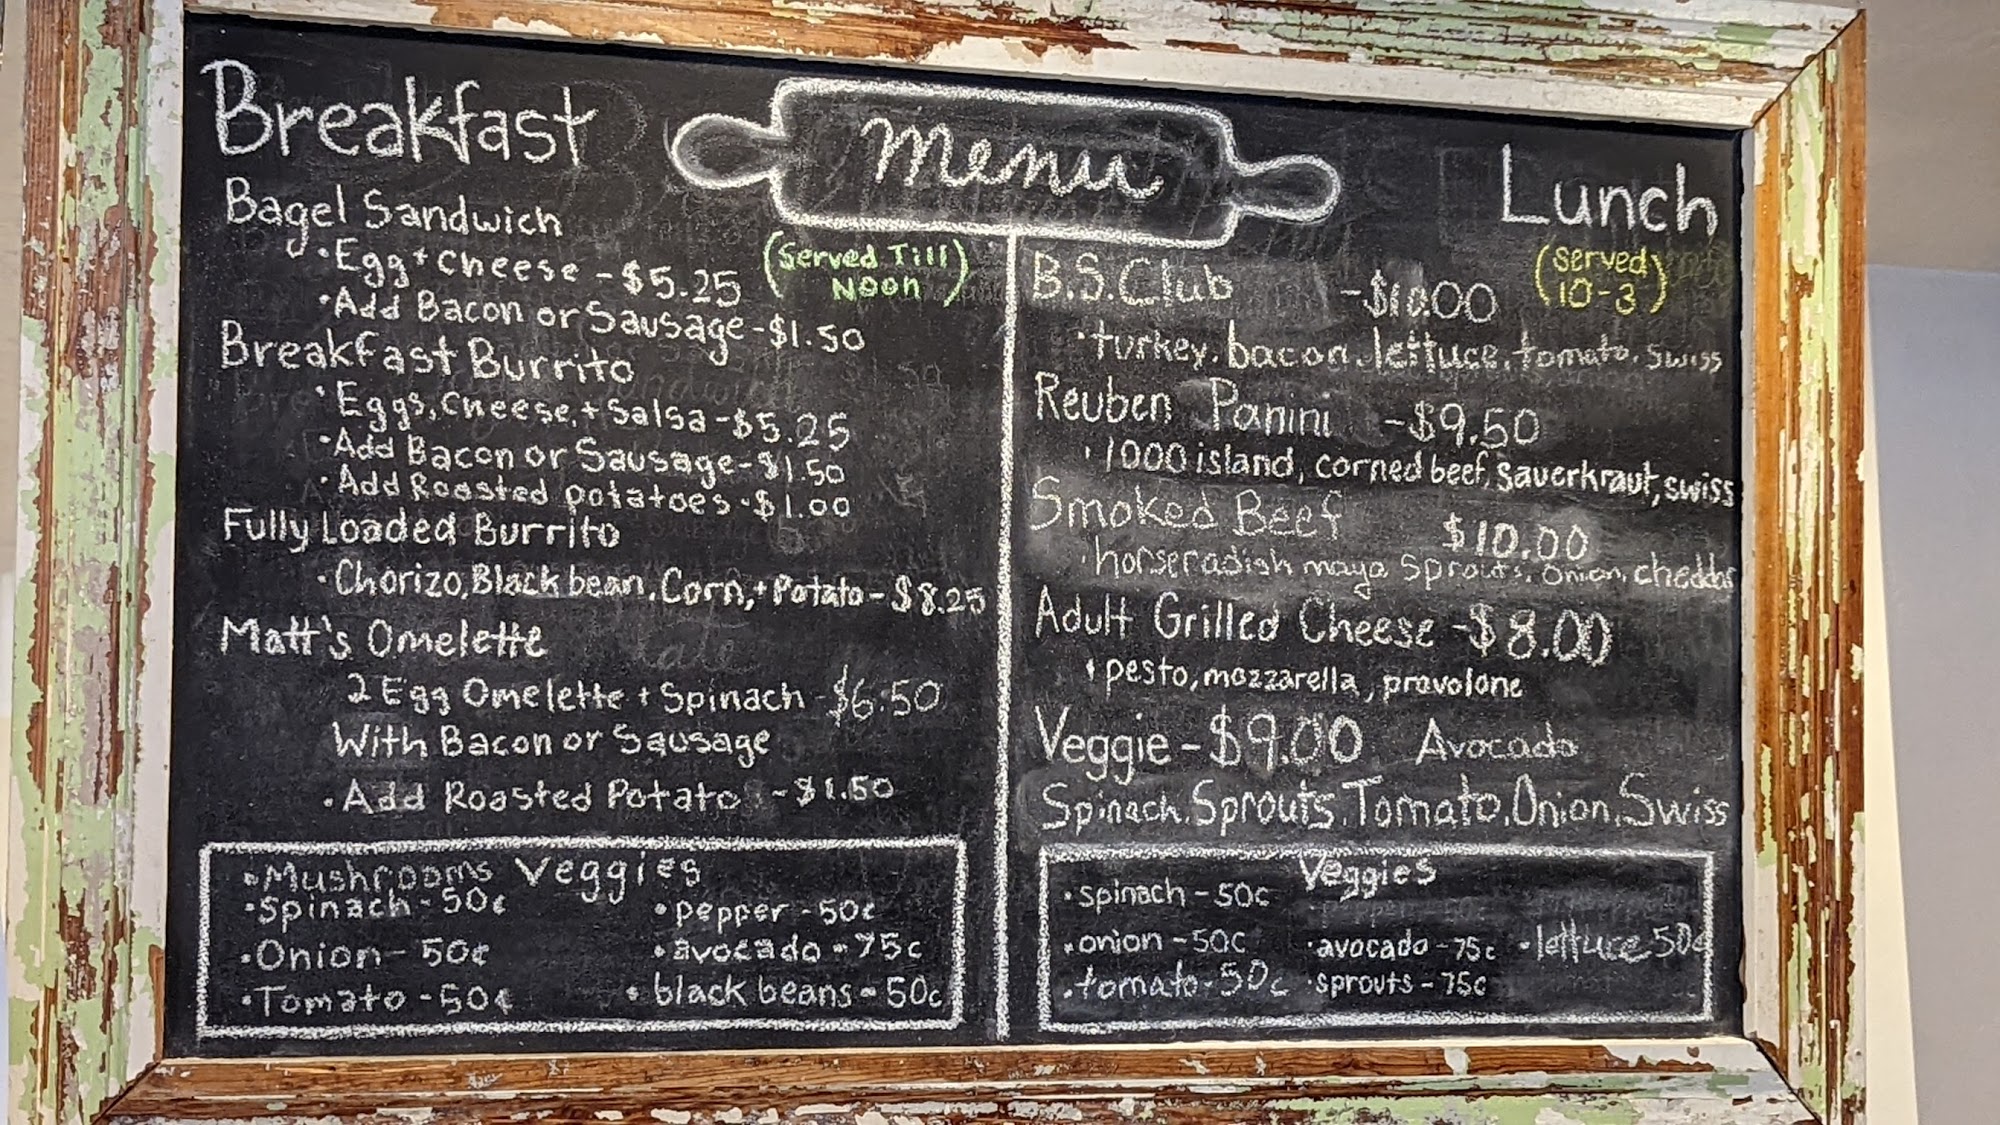 Menu
Breakfast
(Served Till
Noon)
Bagel Sandwich
• Egg + cheese - $5.25
• Add Bacon or Sausage - $1.50
Breakfast Burrito
• Eggs, cheese, + Salsa - $5.25
• Add Bacon or Sausage - $1.50
• Add Roasted potatoes - $1.00
Fully Loaded Burrito
• Chorizo, Black bean, Corn, + Potato - $8.25
Matt's Omelette
2 Egg Omelette + Spinach - $6.50
With Bacon or Sausage
• Add Roasted Potato - $1.50
Veggies
• Mushrooms
• Spinach - 50c
• Onion - 50c
• Tomato - 50c
• pepper - 50c
• avocado - 75c
• black beans - 50c
Lunch
(Served
10-3)
B.S. Club - $10.00
• turkey, bacon, lettuce, tomato, swiss
Reuben Panini - $9.50
• 1000 island, corned beef, sauerkraut, swiss
Smoked Beef $10.00
• horseradish mayo Sprouts, onion, cheddar
Adult Grilled Cheese - $8.00
• pesto, mozzarella, provolone
Veggie - $9.00 Avocado
Spinach, Sprouts, Tomato, Onion, Swiss
Veggies
• spinach - 50c
• onion - 50c
• tomato - 50c
• avocado - 75c
• sprouts - 75c
• lettuce 50c